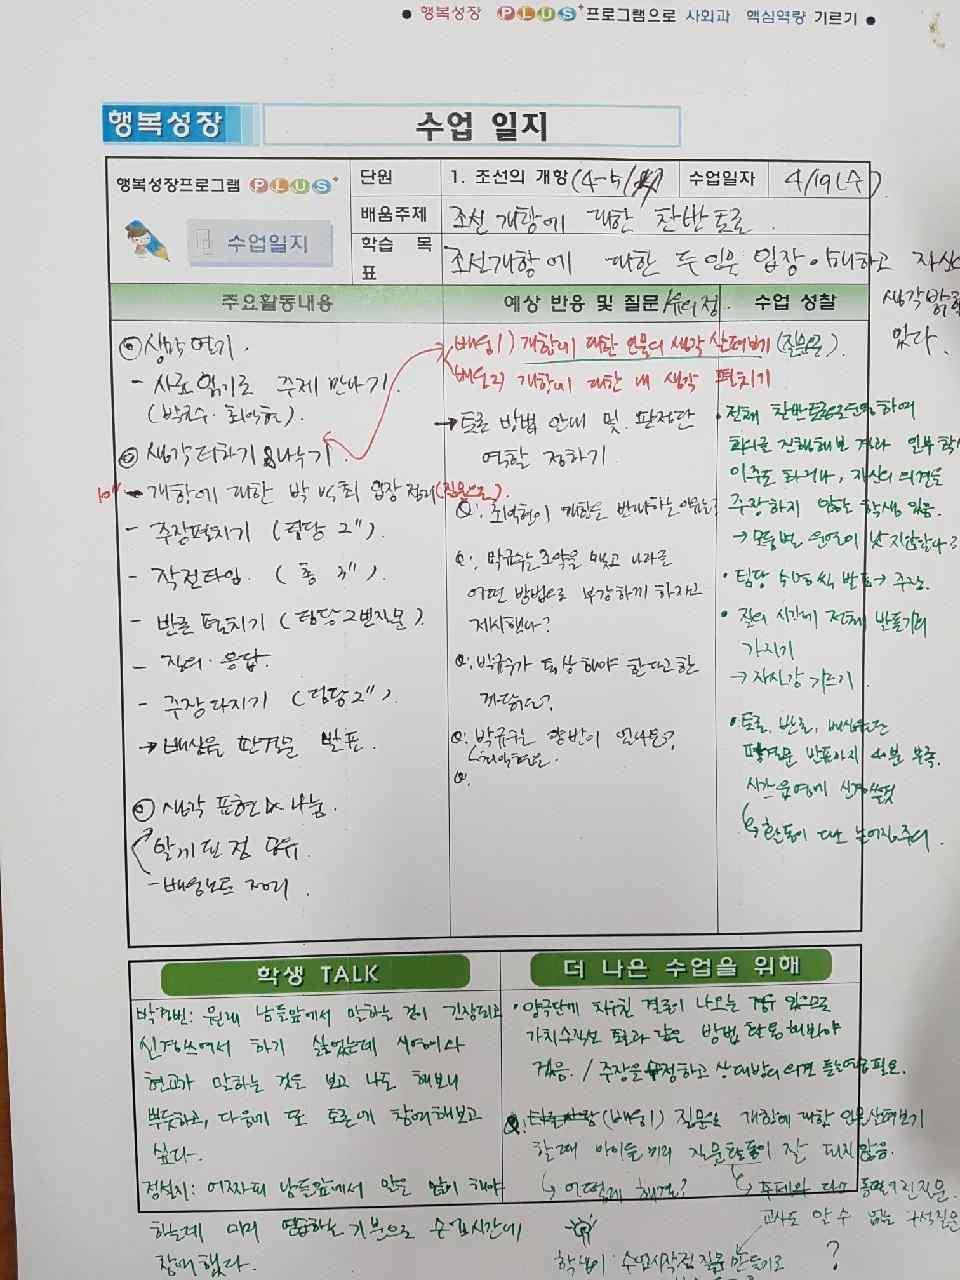 ● 행복성장 PLUS+프로그램으로 사회과 핵심역량 기르기 ●
행복성장 수업 일지
행복성장프로그램 PLUS+
수업일지
단원 1. 조선의 개항(4-5/ 수업일자 4/19(수).
배움주제 조선 개항에 대한 찬반토론.
학습 목표 조선개항에 대한 두 인물 입장 이해하고 자신
생각 밝
있다.
주요활동내용
◎ 생각 열기.
- 사료 읽기로 주제 만나기.
(박규수·최익현).
◎ 생각더하기 & 나누기.
10" - 개항에 대한 박 vs 최 입장 정리(질문으로).
- 주장펼치기 (팀당 2").
- 작전타임. (총 3").
- 반론 펼치기 (팀당 2번 질문).
- 질의·응답.
- 주장 다지기 (팀당 2").
→ 배심원 판결문 발표.
◎ 생각 표현 & 나눔.
알게 된 점 공유.
- 배움노트 정리.
예상 반응 및 질문/유의점.
배움1) 개항에 대한 인물의 생각 살펴보기 (질문으로).
배움2) 개항에 대한 내 생각 펼치기
→ 토론 방법 안내 및 판정단
역할 정하기.
Q: 최익현이 개항을 반대하는 이유는?
Q: 박규수는 조약을 맺고 나라를
어떤 방법으로 부강하게 하자고
제시했나?
Q: 박규수가 통상해야 한다고 한
까닭은?
Q: 박규수는 양반이 였나요?
최익현은.
Q.
수업 성찰
• 전체 찬반토론으로 하여
회의를 진행해본 결과 일부 학
위주로 하거나, 자신의 의견을
주장하지 않는 학생 있음.
→ 모둠별 원원이 낫지않을까?
• 팀당 씩 발표 → 주장.
• 질의 시간에 전체 반론기회
가지기
→ 자신감 기르기.
• 토론, 반론, 배심원단
판결문 발표까지 40분 부족.
시간 운영에 신경쓸것
↳ 활동이 다소 늘어짐 주의.
학생 TALK
박경빈: 원래 남들앞에서 말하는 것이 긴장되고
신경쓰여서 하기 싫었는데 와
현교가 말하는 것을 보고 나도 해보니
뿌듯하고, 다음에 또 토론에 참여해보고
싶다.
정설지: 어짜피 남들앞에서 말을 많이 해야
하는데 미리 연습하는 기분으로 토론시간에
참여했다.
더 나은 수업을 위해
• 양극단에 치우친 결론이 나오는 경우 있으므로
가치수직선 토론과 같은 방법 활용해봐야
겠음. / 주장을 수정하고 상대방의 의견 듣는여유필요.
Q: (배움1) 질문으로 개항에 대한 인물살펴보기
할때 아이들끼리 질문활동이 잘 되지않음.
↳ 어떻게 해결? ↳ 주제와 다소 동떨어진질문.
교사도 알 수 없는 구석질문
학생이 수업시작전 질문 만들기로 ?